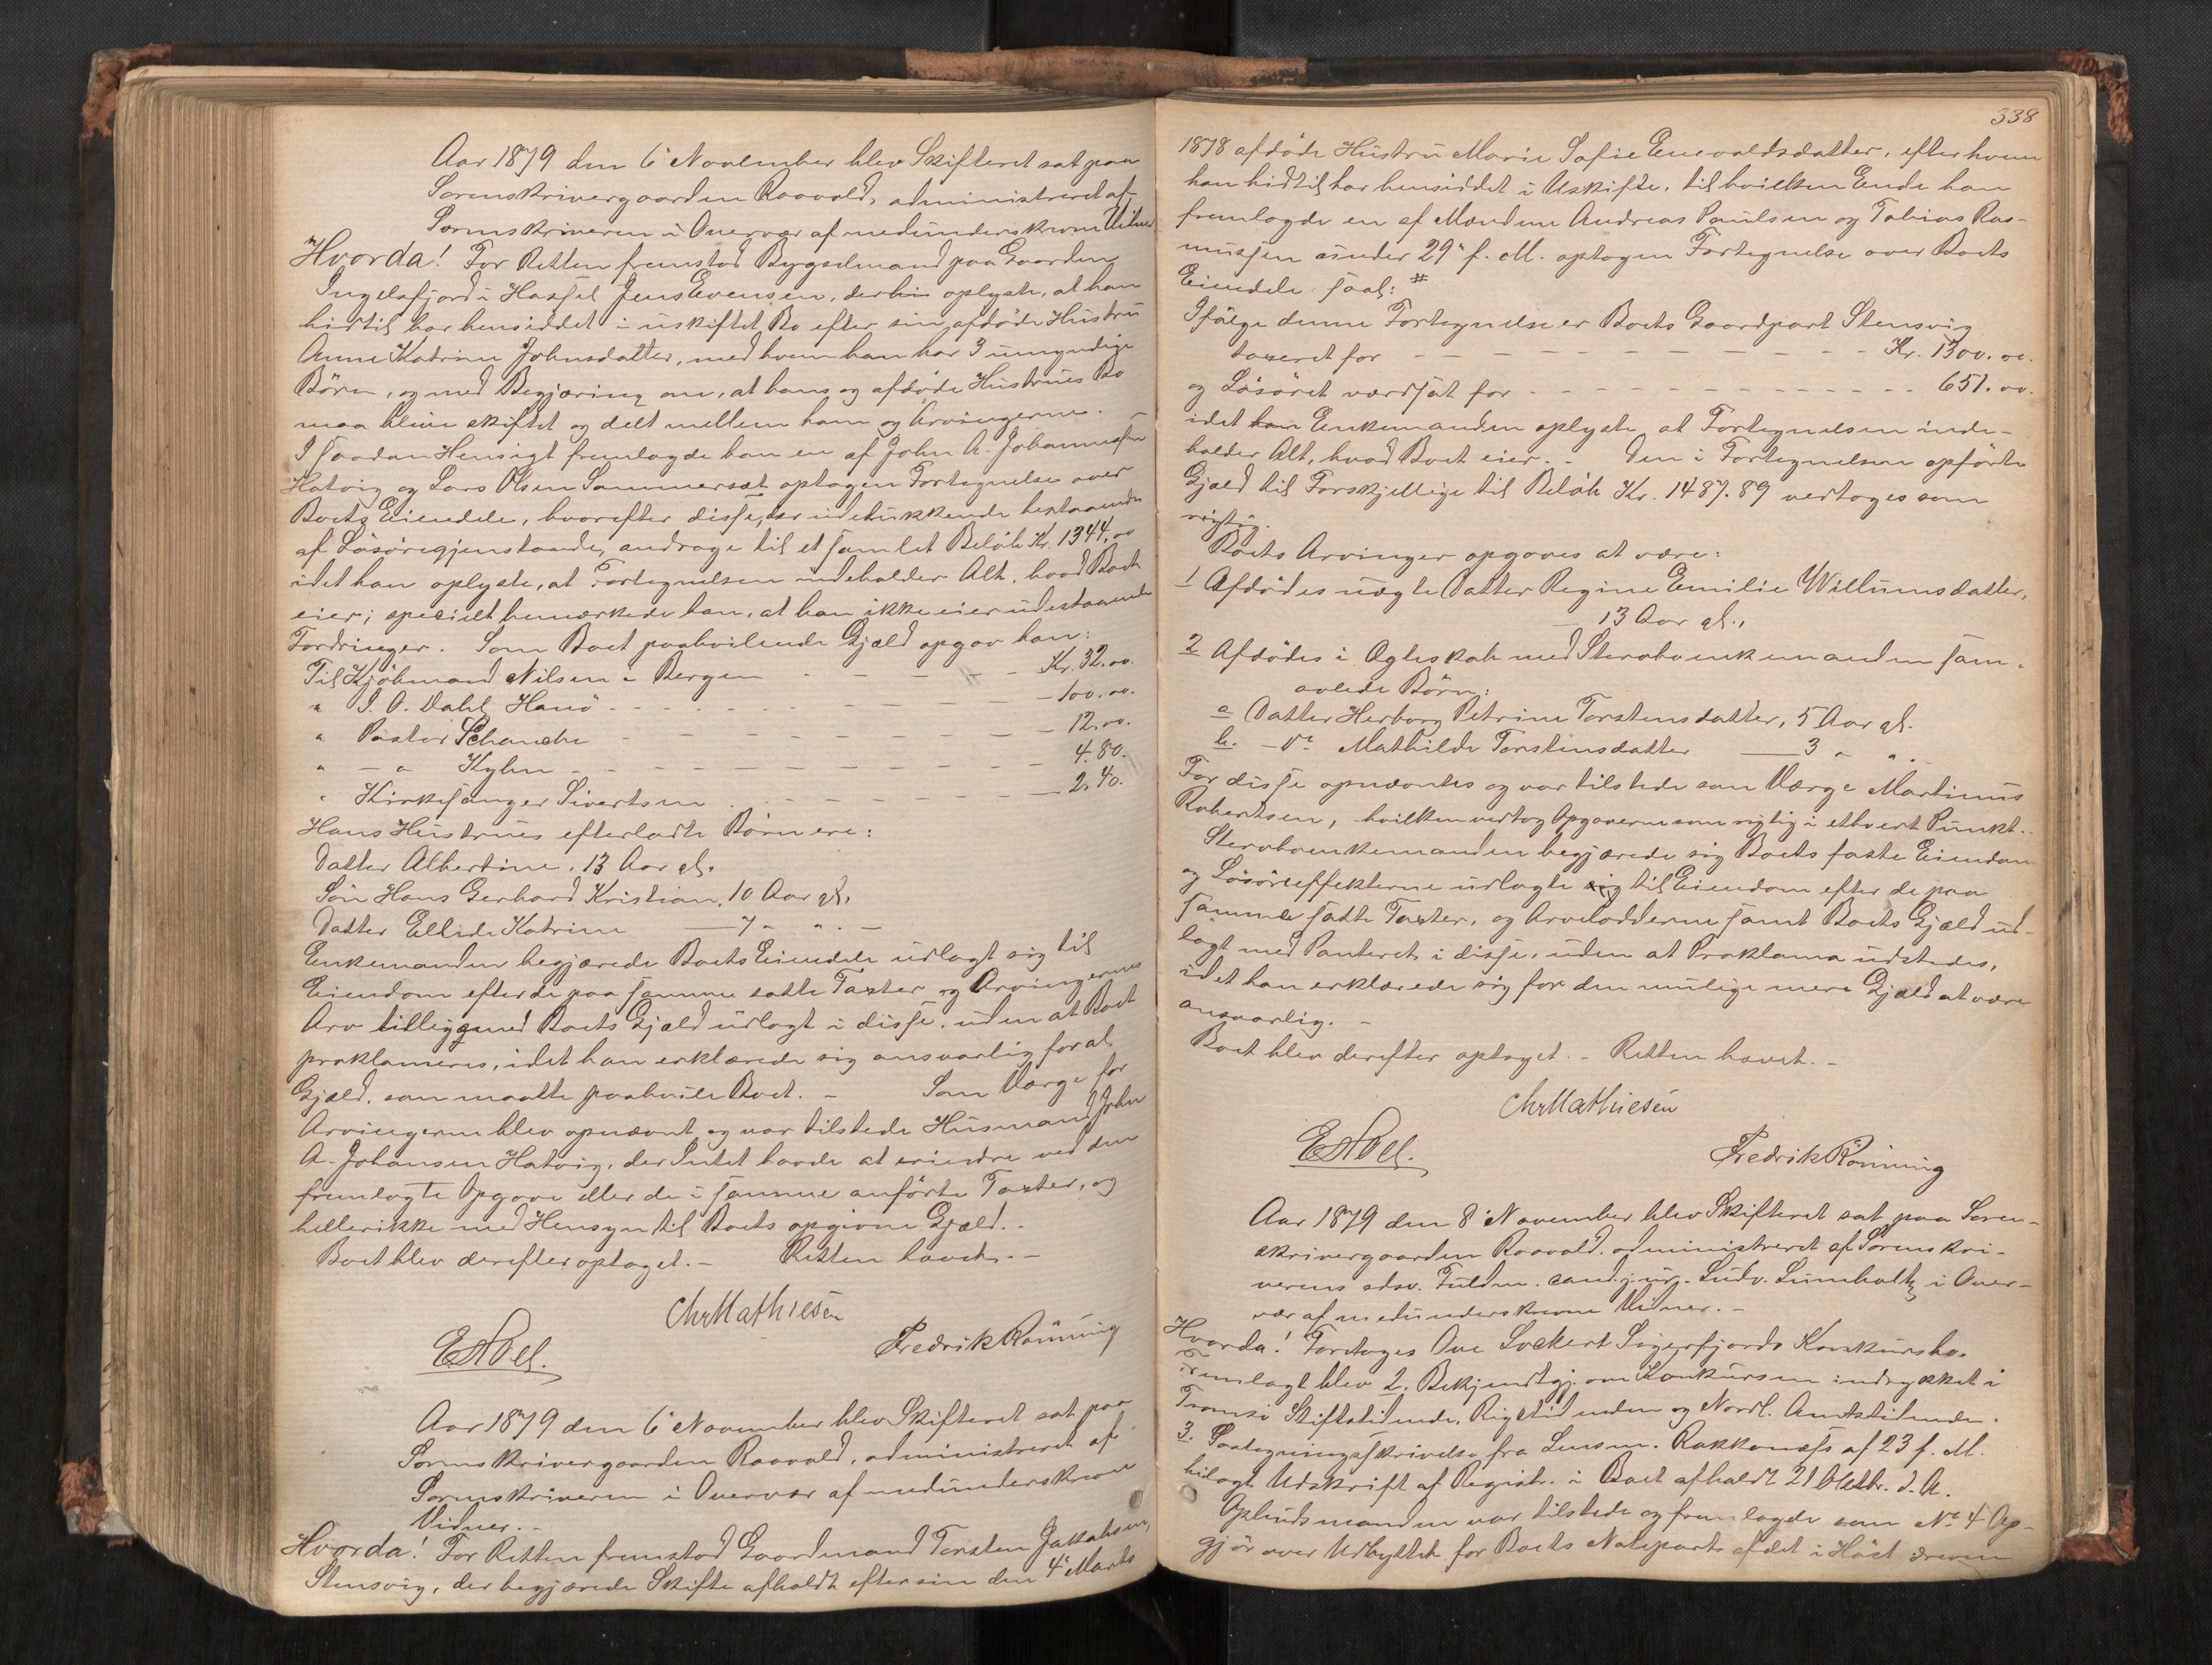 Aar 1879 den 6' November blev Skifteret sat paa
Sorenskrivergaarden Raavold, administreret af
Sorenskriveren i Overvær af medunderskrevne Vidner
Hvorda! For Retten fremstod Bygselmand paa Gaarden
Ingelsfjord i Hassel Jens Evensen, der oplyste, at han
hidtil har hensiddet i uskiftet Bo efter sin afdöde Hustru
Anne Katrine Johnsdatter, med hvem han har 3 umyndige
Börn, og med Begjæring om, at hans og afdöde Hustrues Bo
maa blive skiftet og delt mellem ham og Arvingerne.
I saadan Hensigt fremlagde han en af John A. Johannessen
Hatvig og Lars Olsen Sommersæt optagen Fortegnelse over
Boets Eiendele, hvorefter disse, der udelukkende bestaaende
af Lösöregjenstande, andrage til et samlet Beløb Kr. 1344,00
idet han oplyste, at Fortegnelsen indeholder Alt, hvad Boet
eier; specielt bemærkede han, at han ikke eier udestaaende
Fordringer. Som Boet paahvilende Gjæld opgav han:
Til Kjöbmand Nilsen i Bergen - - - - Kr. 32,00.
" J. A. Dahl, Hanö - - - - - - 100,00.
" Pastor Schanche - - - - - - 12,00.
" - " Kyhn - - - - - - 4.80.
" Kirkesanger Sivertsen - - - - - 2,40.
Hans Hustrues efterladte Börn ere:
Datter Albertine, 13 Aar gl.
Sön Hans Gerhard Kristian, 10 Aar gl.
Datter Ellede Katrine — 7 " " . —
Enkemanden begjærede Boets Eiendele udlagt sig til
Eiendom efter de paa samme satte Taxter og Arvingernes
Arv tilligemed Boets Gjæld udlagt i disse, uden at Boet
proklameres, idet han erklærede sig ansvarlig for al
Gjæld, som maatte paahvile Boet. - Som Værge for
Arvingerne blev opnævnt og var tilstede Husmand John
A. Johansen Hatvig, der Intet havde at erindre ved den
fremlagte Opgave eller de i samme anførte Taxter, og
heller ikke med Hensyn til Boets opgivne Gjæld. -
Boet blev derefter optaget. - Retten hævet. -
Chr Mathiesen
E Abel.
Fredrik Rönning
Aar 1879 den 6' November blev Skifteret sat paa
Sorenskrivergaarden Raavold, administreret af
Sorenskriveren i Overvær af medunderskrevne
Vidner. -
Hvorda! For Retten fremstod Gaardmand Torsten Jakobsen,
Stensvig, der begjærede Skifte afholdt efter sin den 4' Marts
338
1878 afdöde Hustru Marie Sofie Enevoldsdatter, efter hvem
han hidtil har hensiddet i Uskifte, til hvilken Ende han
fremlagde en af Mændene Andreas Paulsen og Tobias Ras-
mussen under 29' f. M. optagen Fortegnelse over Boets
Eiendele saal: #
Ifölge denne Fortegnelse er Boets Gaardpart Stensvig
taxeret for - - - - - - - - - - Kr. 1300.00.
og Lösöret værdsat for - - - - - - - - 651.00.
idet Enkemanden oplyste at Fortegnelsen inde-
holder Alt, hvad Boet eier. - Den i Fortegnelsen opførte
Gjæld til Forskjellige til Beløb Kr. 1487.89 vedtoges som
rigtig.
Boets Arvinger opgaves at være:
1 Afdödes uægte Datter Regine Emilie Willumsdatter,
13 Aar gl.,
2 Afdödes i Ægteskab med Stervboenkemanden sam-
avlede Börn:
a Datter Herborg Petrine Torstensdatter, 5 Aar gl.
b. - Do Mathilde Torstensdatter — 3 " " . -
For disse opnævntes og var tilstede som Værge Martinus
Robertsen, hvilken vedtog Opgaverne som rigtig i ethvert Punkt. -
Stervboenkemanden begjærede sig Boets faste Eiendom
og Lösöreeffekterne udlagte til Eiendom efter de paa
samme satte Taxter, og Arvelodderne samt Boets Gjæld ud-
lagt med Panteret i disse, uden at Proklama udstedes,
idet han erklærede sig for den mulige mere Gjæld at være
ansvarlig. -
Boet blev derefter optaget. - Retten hævet. -
Chr Mathiesen
E Abel.
Fredrik Rönning
Aar 1879 den 8' November blev Skifteret sat paa Soren-
skrivergaarden Raavold, administreret af Sorenskri-
verens edsv. Fuldm. cand. jur. Ludv. Lumholtz i Over-
vær af medunderskrevne Vidner. -
Hvorda! Foretoges Ove Lockert Sigerfjords Konkursbo.
Fremlagt blev 2. Bekjendtgj. om Konkursen indrykket i
Tromsö Stiftstidende, Rigstidenden og Nordl. Amtstidende.
3. Paategningsskrivelse fra Lensm. Rakkenæss af 23 f. M.
bilagt Udskrift af Registr. i Boet afholdt 21 Oktbr. d. A.
Opbudsmanden var tilstede og fremlagde som No 4 Op-
gjör over Udbyttet for Boets Notepart af det i Höst drevne